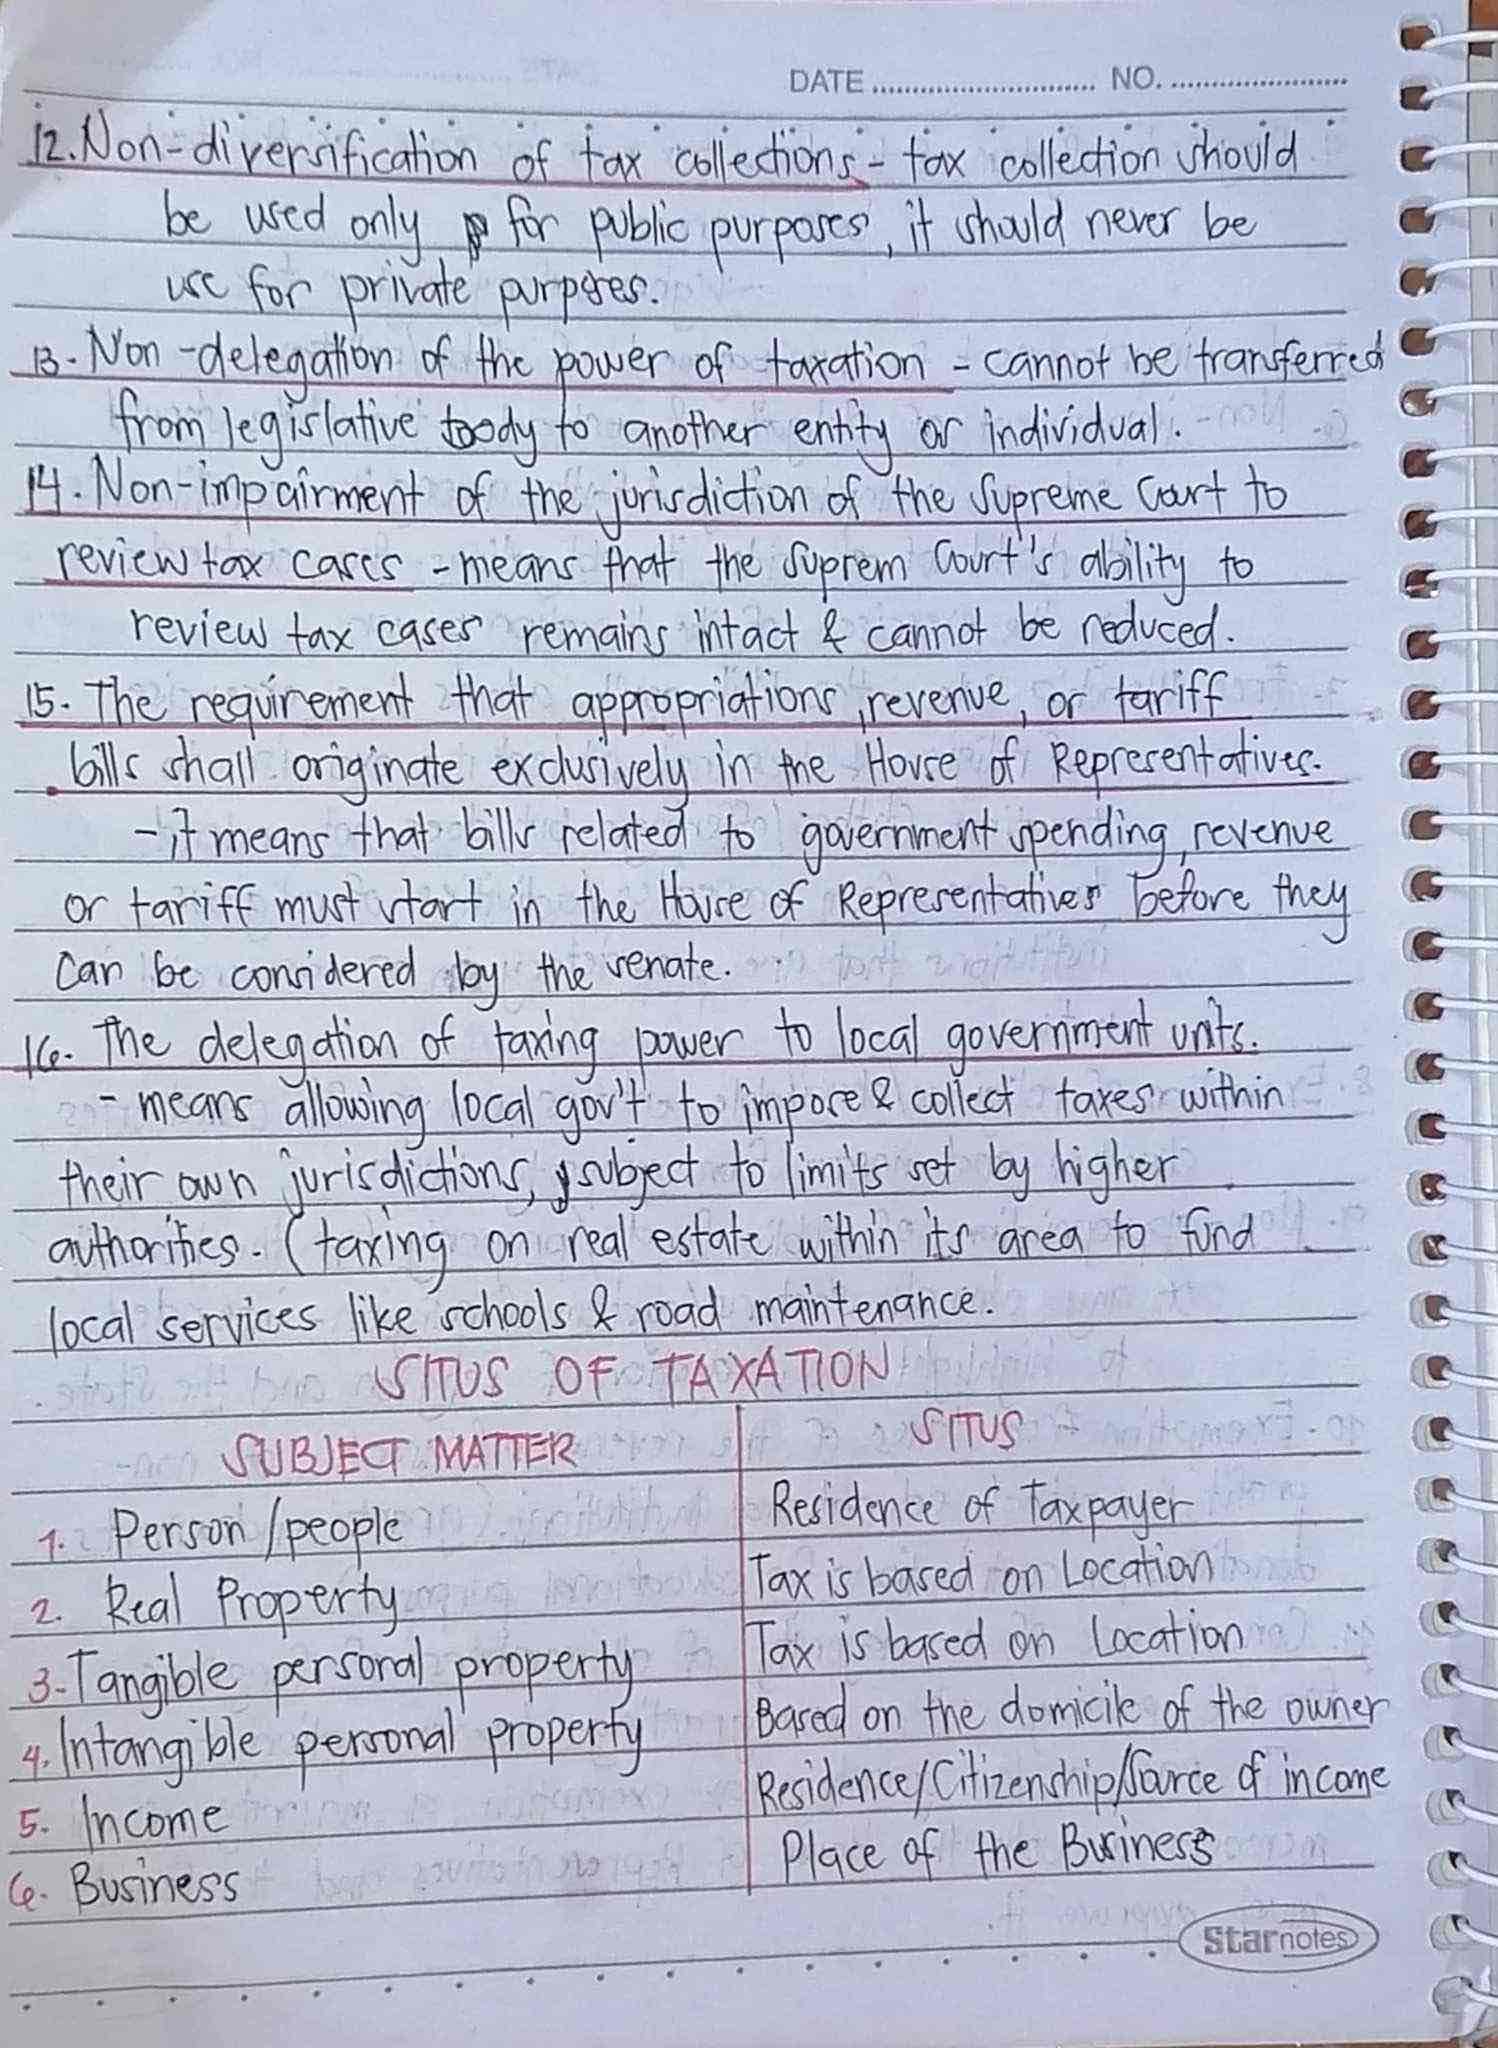 DATE ............................ NO. ........................
12. Non-diversification of tax collections - tax collection should
be used only for public purposes, it should never be
use for private purposes.
13. Non-delegation of the power of taxation - cannot be transferred
from legislative body to another entity or individual.
14. Non-impairment of the jurisdiction of the Supreme Court to
review tax cases - means that the Suprem Court's ability to
review tax cases remains intact & cannot be reduced.
15. The requirement that appropriations, revenue, or tariff
bills shall originate exclusively in the House of Representatives.
- it means that bills related to government spending, revenue
or tariff must start in the House of Representatives before they
can be considered by the senate.
16. The delegation of taxing power to local government units.
- means allowing local gov't to impose & collect taxes within
their own jurisdictions, subject to limits set by higher
authorities. (taxing on real estate within its area to fund
local services like schools & road maintenance.
SITUS OF TAXATION
SUBJECT MATTER SITUS
1. Person/people Residence of Taxpayer
2. Real Property Tax is based on Location
3. Tangible personal property Tax is based on Location
4. Intangible personal property Based on the domicile of the owner
5. Income Residence/Citizenship/Source of income
6. Business Place of the Business
Starnotes